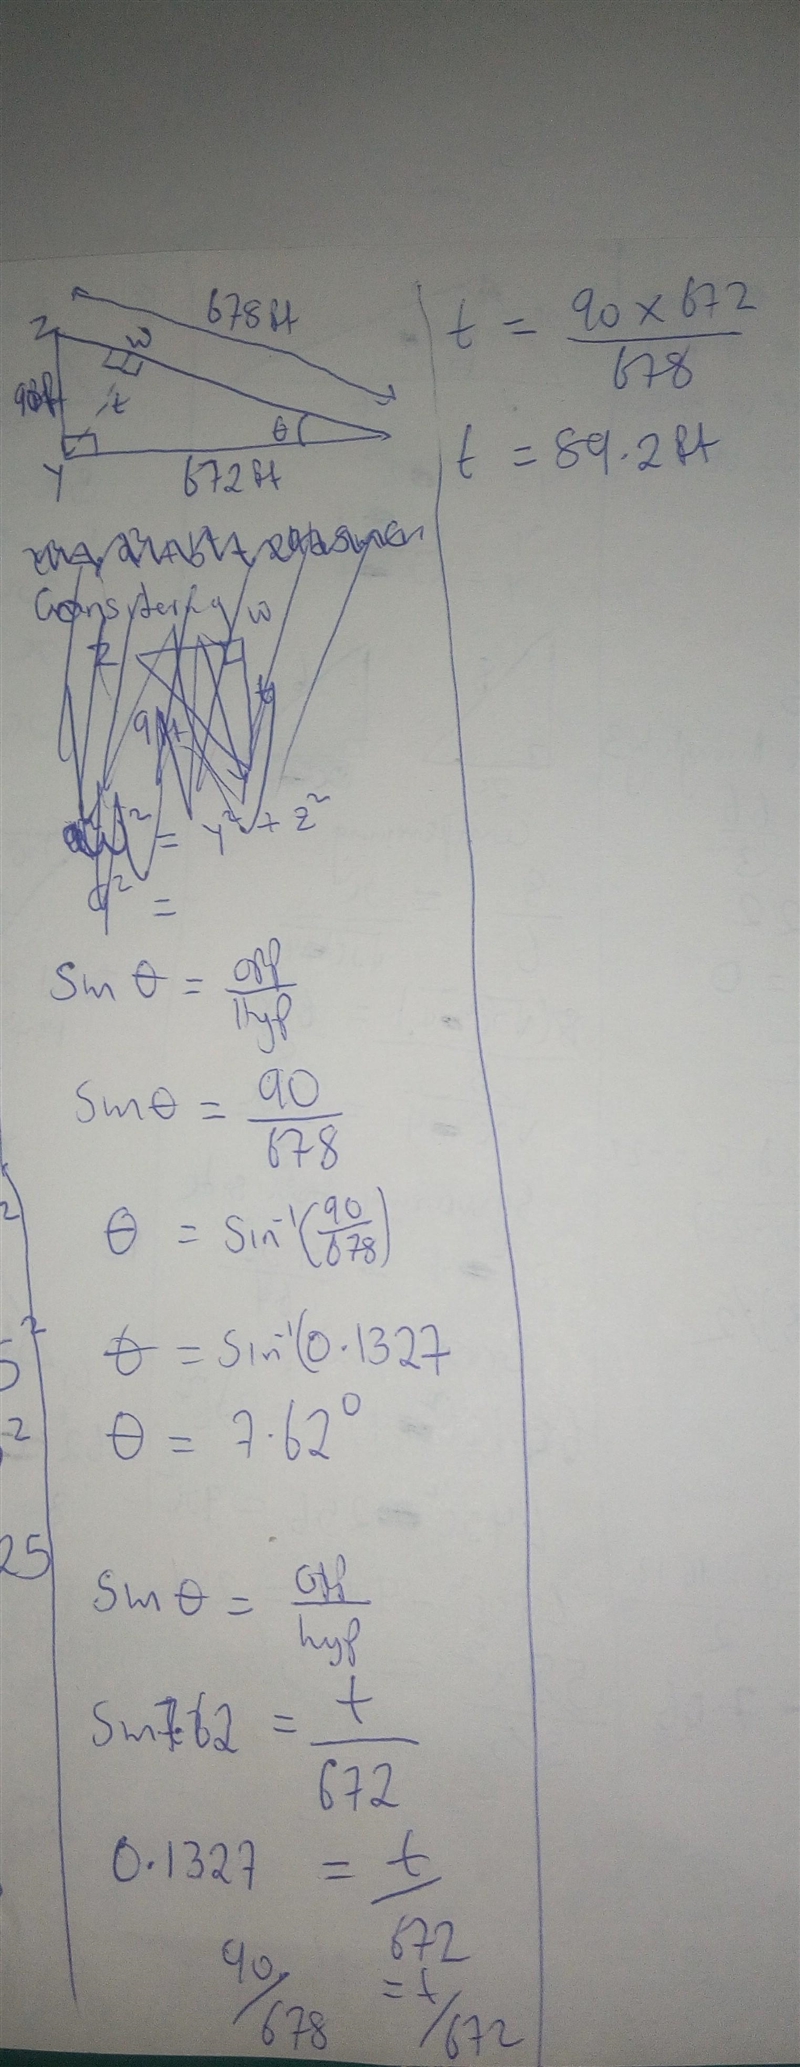 678ft
Z
W
90ft
t
θ
Y
672ft
Considering
W
Z
t
9ft
= y² + z²
q² =
Sin θ = opp/Hyp
Sinθ = 90/678
θ = Sin⁻¹(90/678)
θ = Sin⁻¹(0.1327
θ = 7.62⁰
Sin θ = opp/hyp
Sin7.62 = t/672
0.1327 = t/672
90/678 = t/672
t = 90 x 672/678
t = 89.2ft
2
5²
2
25